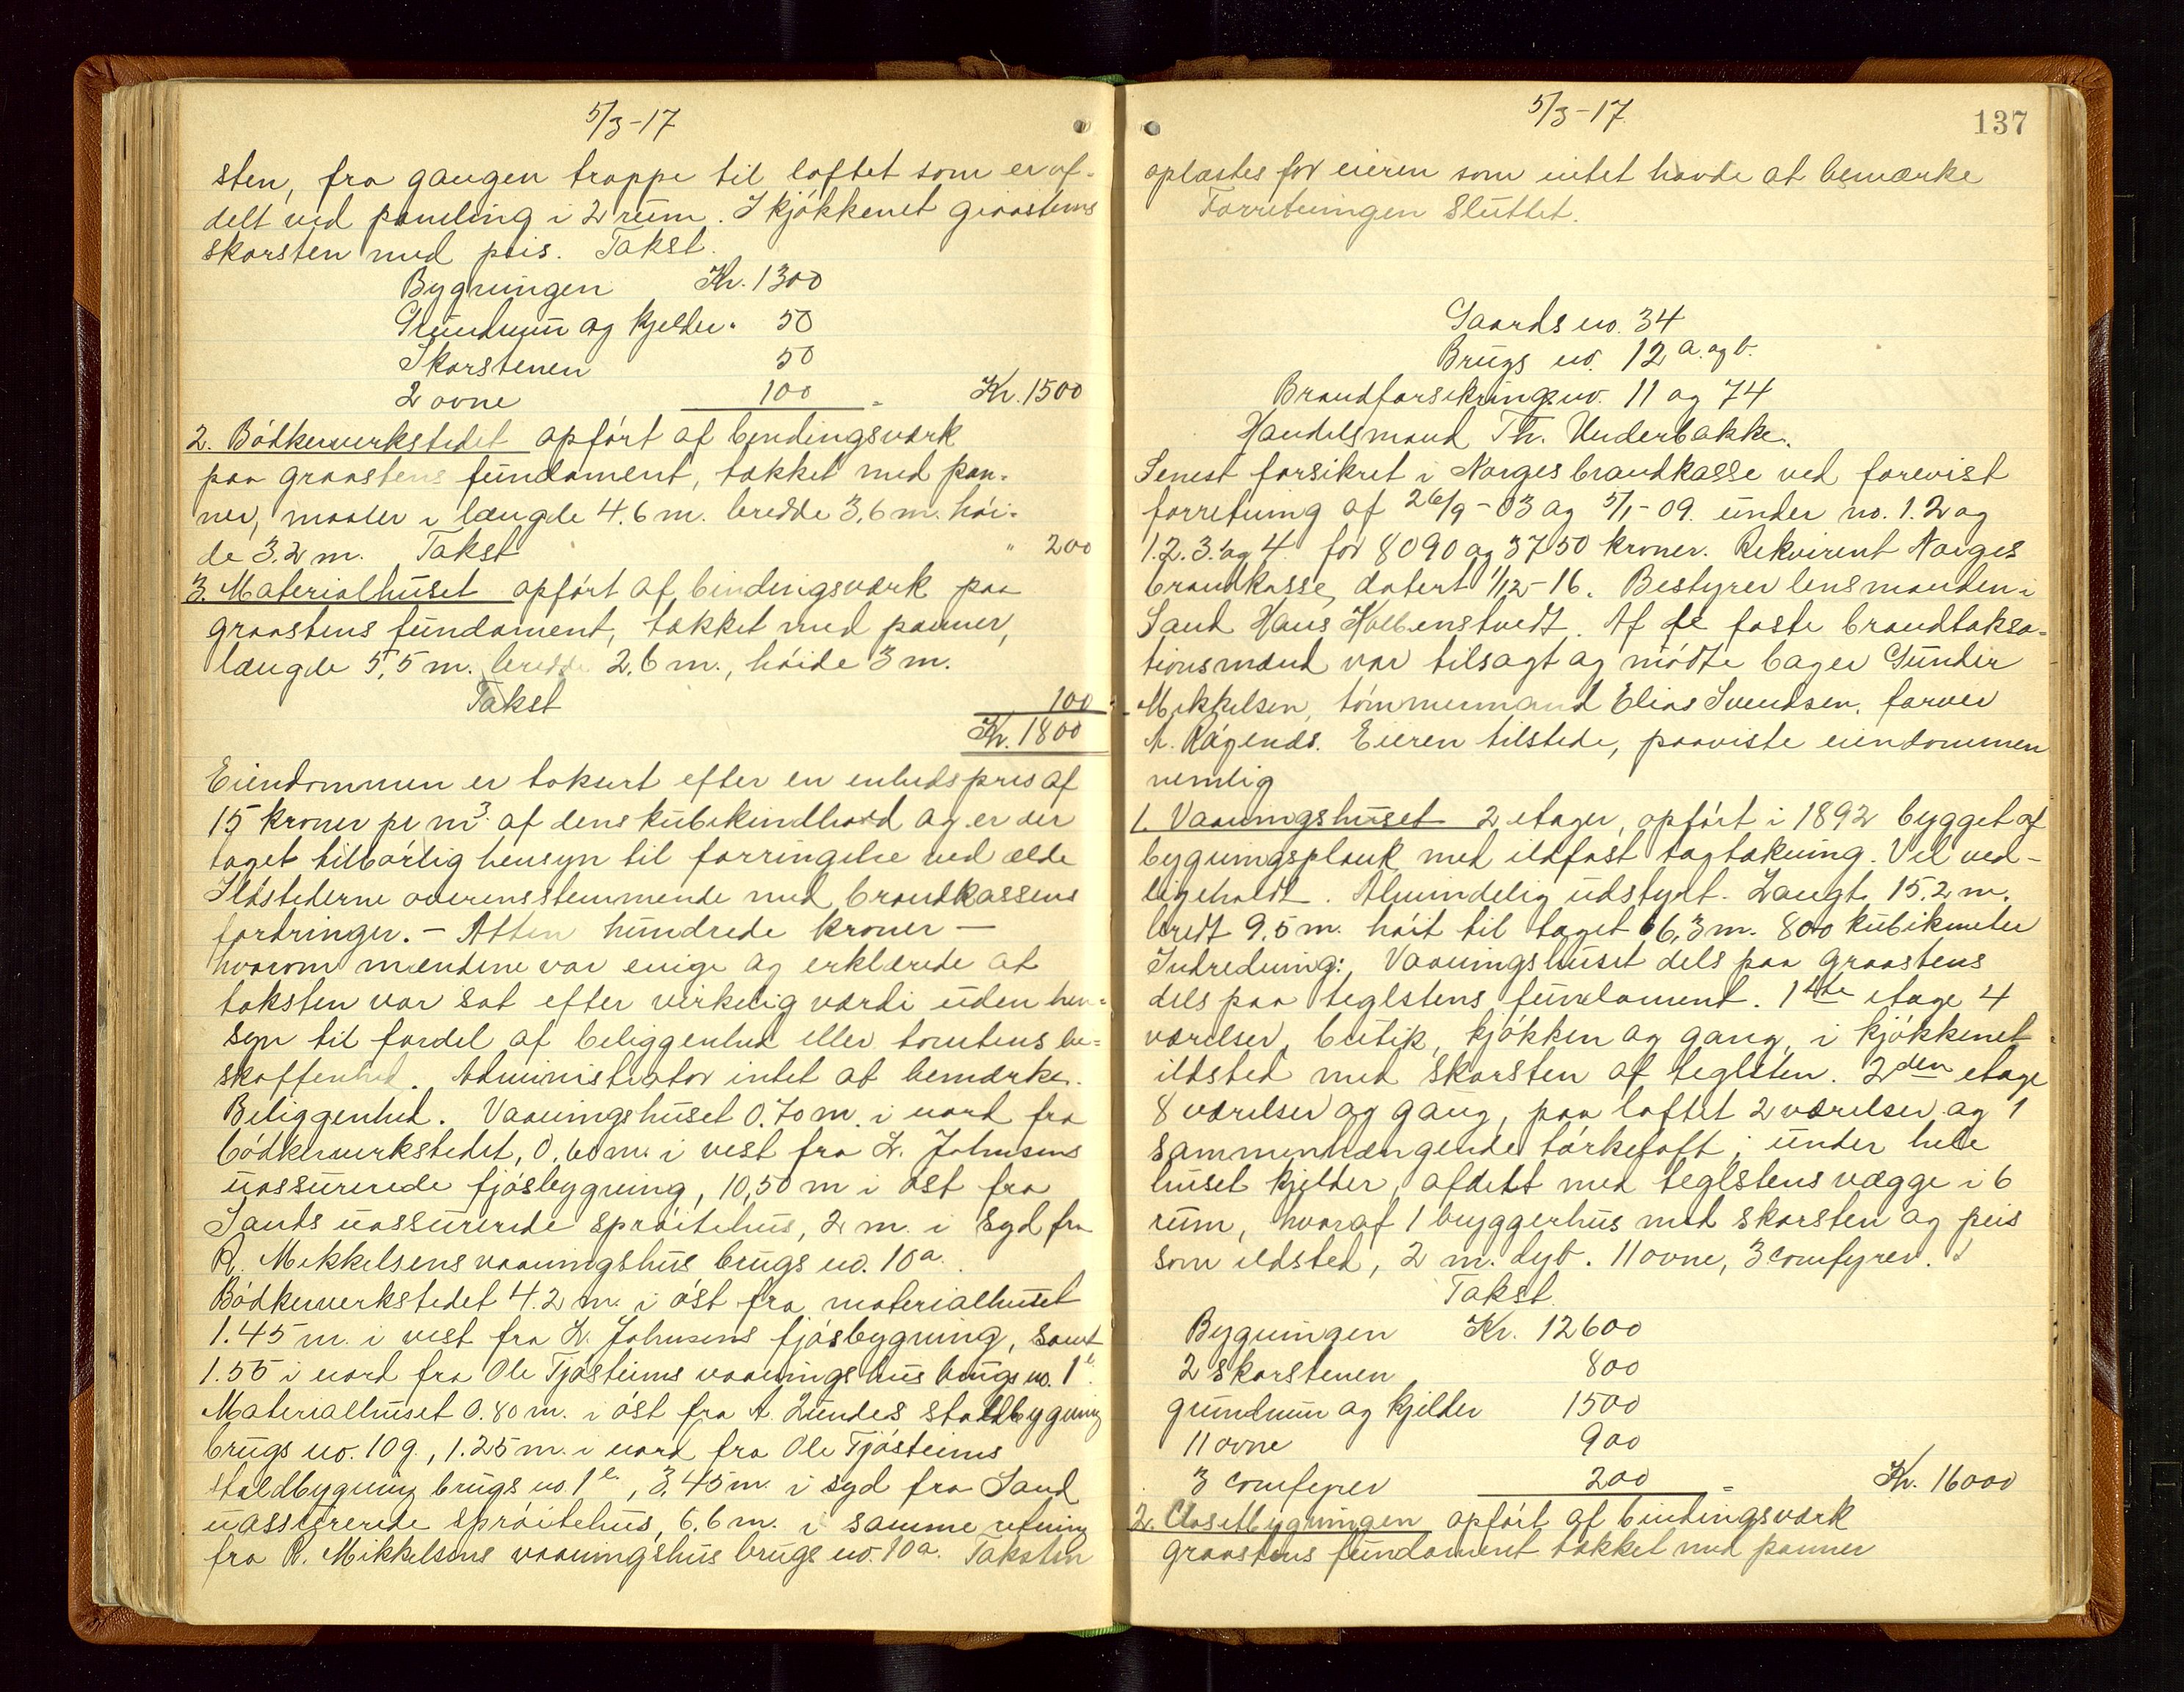 5/3-17
sten, fra gangen trappe til loftet som er af-
delt ved paneling i 2 rüm. I kjøkkenet graastens
skorsten med peis. Takst.
Bygningen Kr. 1300
Grundmur og kjelder " 50
Skorstenen 50
2 ovne 100 = Kr. 1500
2. Bødkerverkstedet opført af bindingsværk
paa graastens fündament, takket med pan-
ner, maaler i længde 4.6 m. bredde 3,6 m. høi-
de 3.2 m. Takst " 200
3. Materialhüset opført af bindingsværk paa
graastens fündament, takket med panner,
længde 5,5 m. bredde 2,6 m., høide 3 m.
Takst 100
Kr. 1800
Eiendommen er taksert efter en enhedspris af
15 kroner pr m3. af dens kübikindhold og er der
taget tilbørlig hensyn til forringelse ved ælde
Ildstederne overensstemmende med brandkassens
fordringer. - Atten hündrede kroner -
hvorom mændene var enige og erklærede at
taksten var sat efter virkelig værdi üden hen-
syn til fordel af beliggenhed eller tomtens be-
skaffenhed. Administrator intet at bemærke.
Beliggenhed. Vaaningshüset 0.70 m. i nord fra
bødkerverkstedet, 0,60 m. i vest fra L. Johnsens
üassürerede fjøsbygning, 10,50 m i øst fra
Sands üassürerede sprøitehüs, 2 m. i syd fra
R. Mikkelsens vaaningshüs brügs no. 10a.
Bødkerverkstedet 4.2 m. i øst fra materialhüset
1.45 m. i vest fra L. Johnsens fjøsbygning, samt
1.55 i nord fra Ole Tjøsteims vaaningshüs brügs no. 1 l.
Materialhüset 0.80 m. i øst fra A. Lündes staldbygning
brügs no. 10g., 1.25 m. i nord fra Ole Tjøsteims
staldbygning brügs no. 1 l., 3,45 m. i syd fra Sand
üassürerede sprøitehüs, 6,6 m. i samme retning
fra R. Mikkelsens vaaningshüs brügs no. 10a. Taksten
5/3-17
137
oplæstes for eieren som intet havde at bemærke
Forretningen Slüttet.
Gaards no. 34
Brügs no. 12 a. og b.
Brandforsikringsno. 11 og 74
Handelsmand Th. Underbakke.
Senest forsikret i Norges brandkasse ved forevist
forretning af 26/9-03 og 5/1-09. ünder no. 1.2 og
1.2.3. og 4 for 8090 og 3750 kroner. Rekvirent Norges
brandkasse, datert 1/12-16. Bestyrer lensmanden i
Sand Hans Kolbenstvedt. Af de faste brandtaksa-
tionsmænd var tilsagt og mødte bager Günder
Mikkelsen, tømmermand Elias Svendsen, farver
A. Røgenes. Eieren tilstede, paaviste eiendommen
nemlig
1. Vaaningshüset 2 etager, opført i 1892 bygget af
bygningsplank med ildfast tagtækning. Vel ved-
ligeholdt. Almindelig üdstyrt. Langt 15,2 m.
bredt 9,5 m. høit til taget 6,3 m. 800 kübikmeter
Indredning: Vaaningshüset dels paa graastens
dels paa teglstens fündament. 1ste etage 4
værelser, bütik, kjøkken og gang, i kjøkkenet
ildsted med skorsten af teglsten. 2den etage
8 værelser og gang, paa loftet 2 værelser og 1
sammenhængende tørkeloft; ünder hele
hüset kjelder, afdelt med teglstens vægge i 6
rüm, hvoraf 1 bryggerhüs med skorsten og peis
som ildsted, 2 m. dyb. 11 ovne, 3 comfyrer.
Takst
Bygningen Kr. 12600
2 skorstenen 800
grundmur og kjelder 1500
11 ovne 900
3 comfyrer 200 = Kr. 16000
2. Closetbygningen opført af bindingsværk
graastens fündament takket med panner